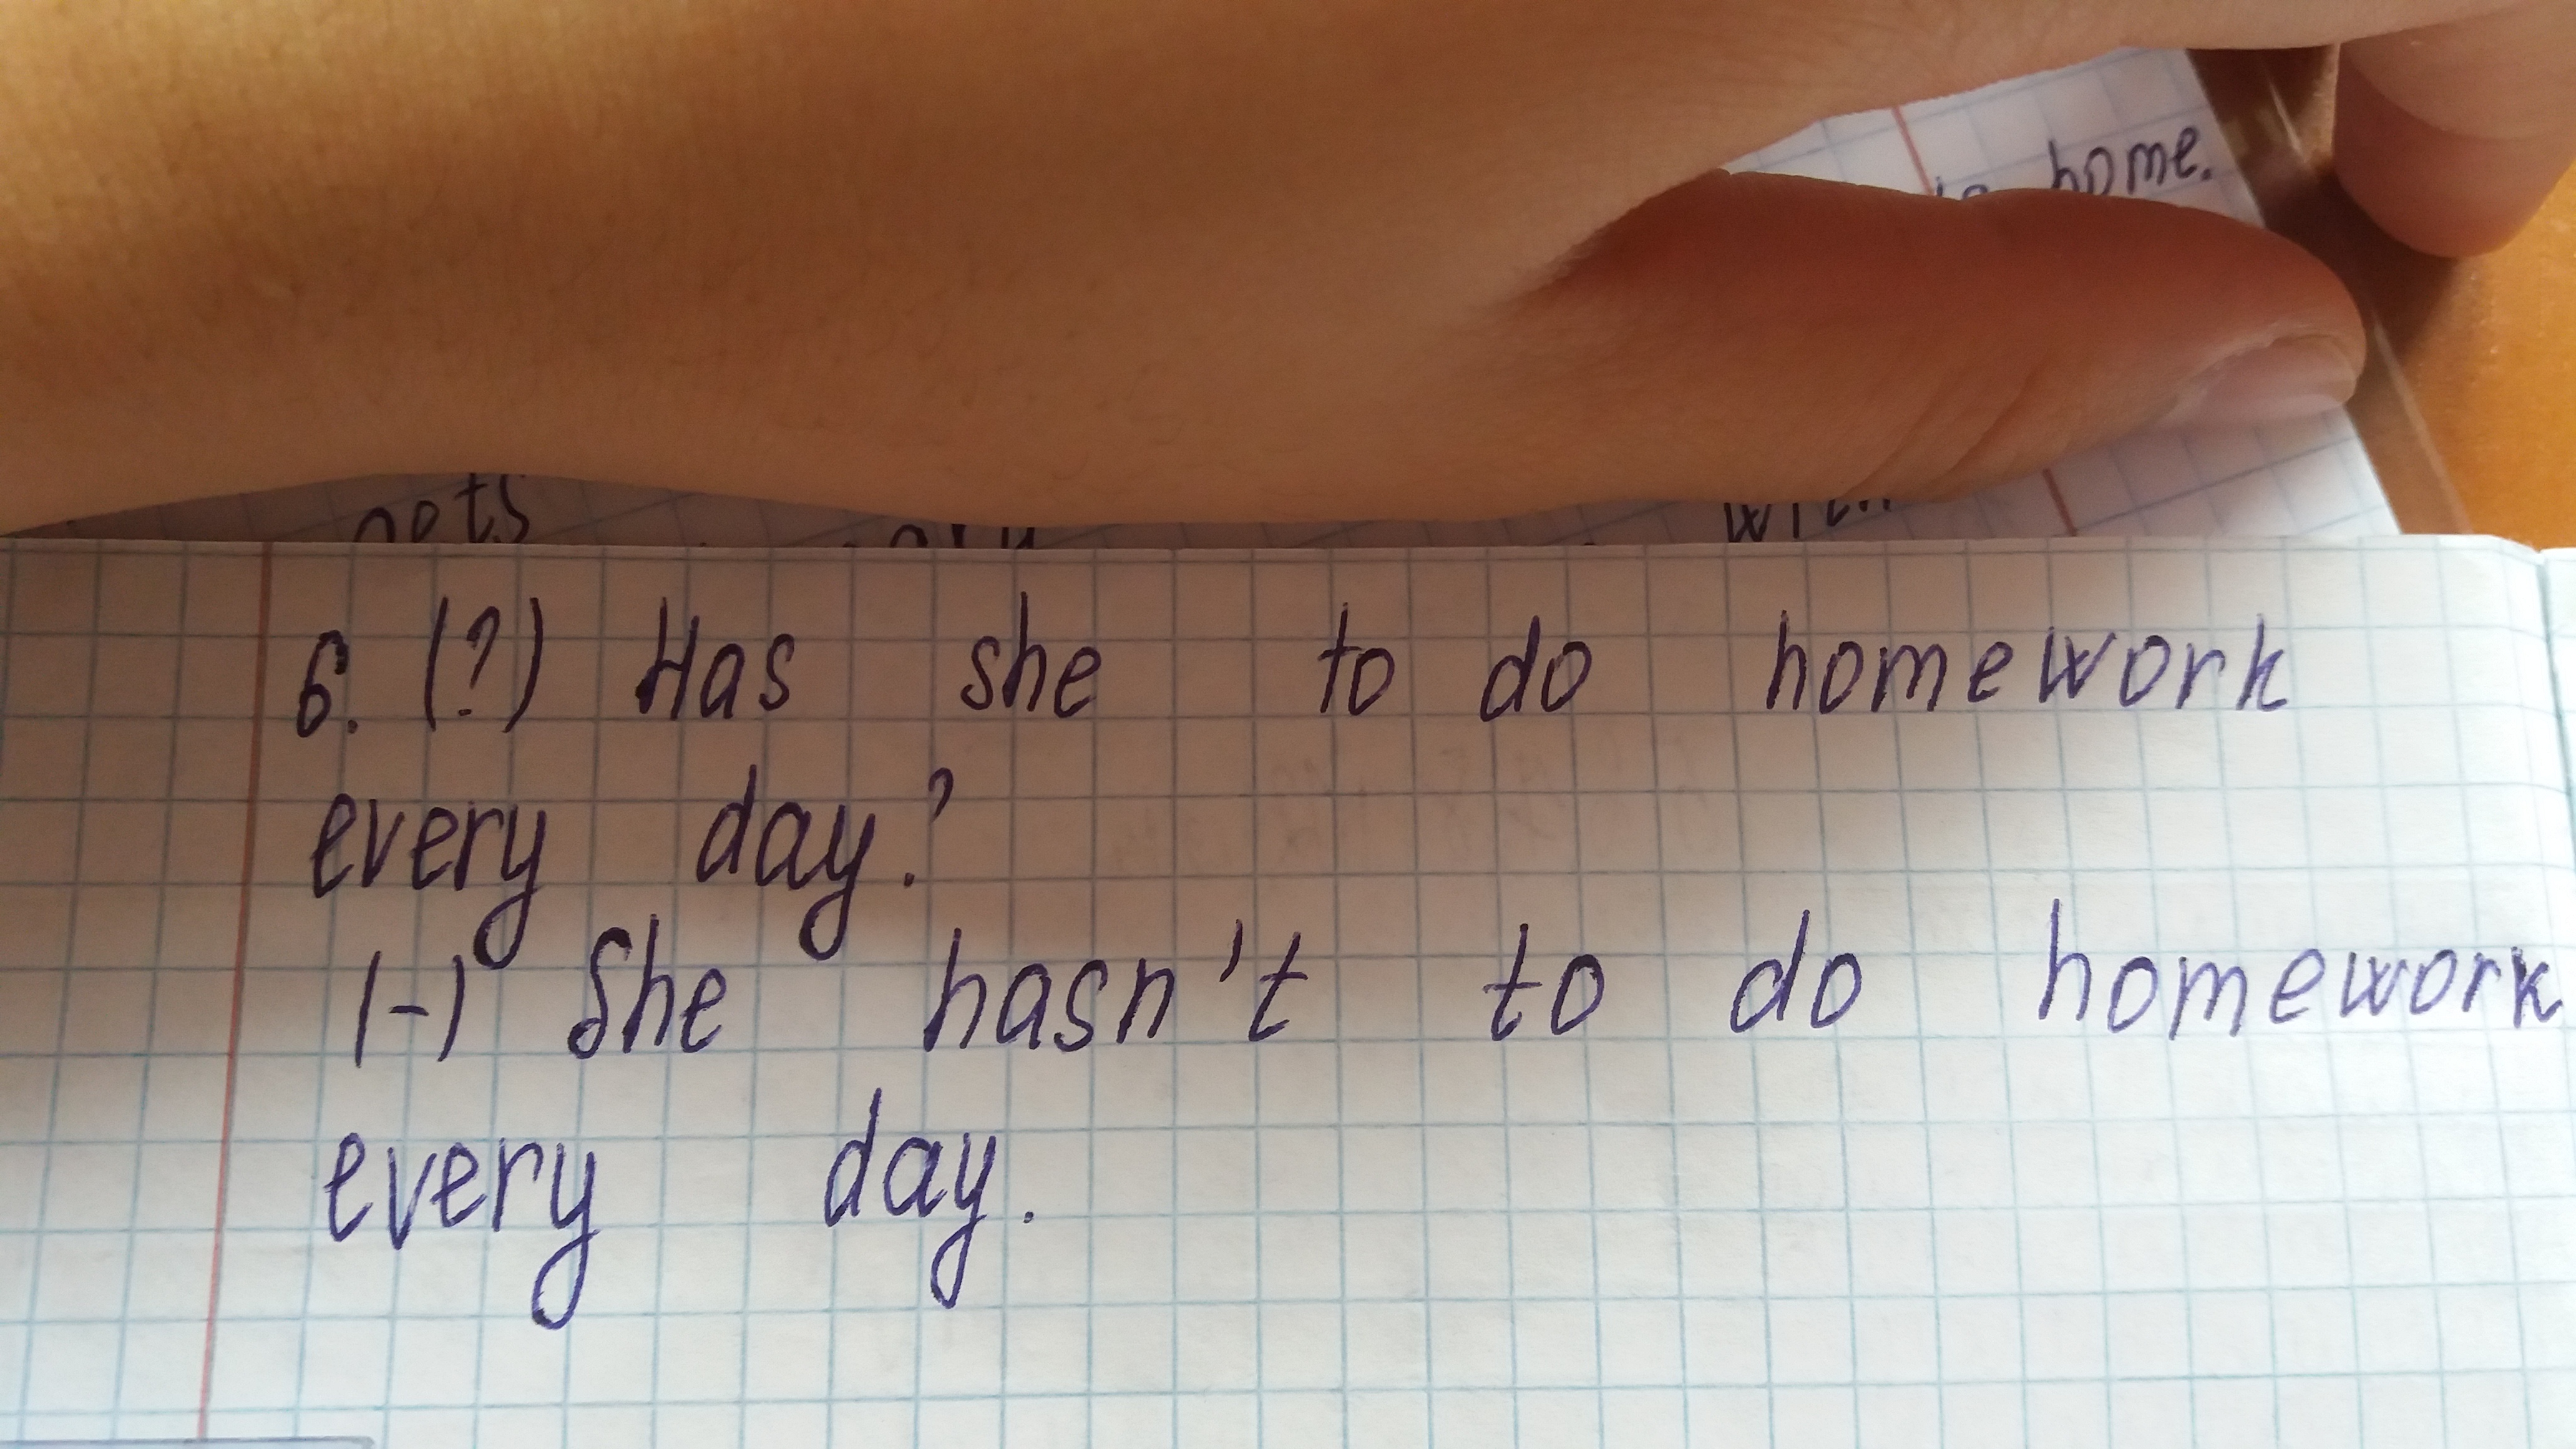 home.
with
6. (?) Has she to do homework
every day?
(-) She hasn't to do homework
every day.